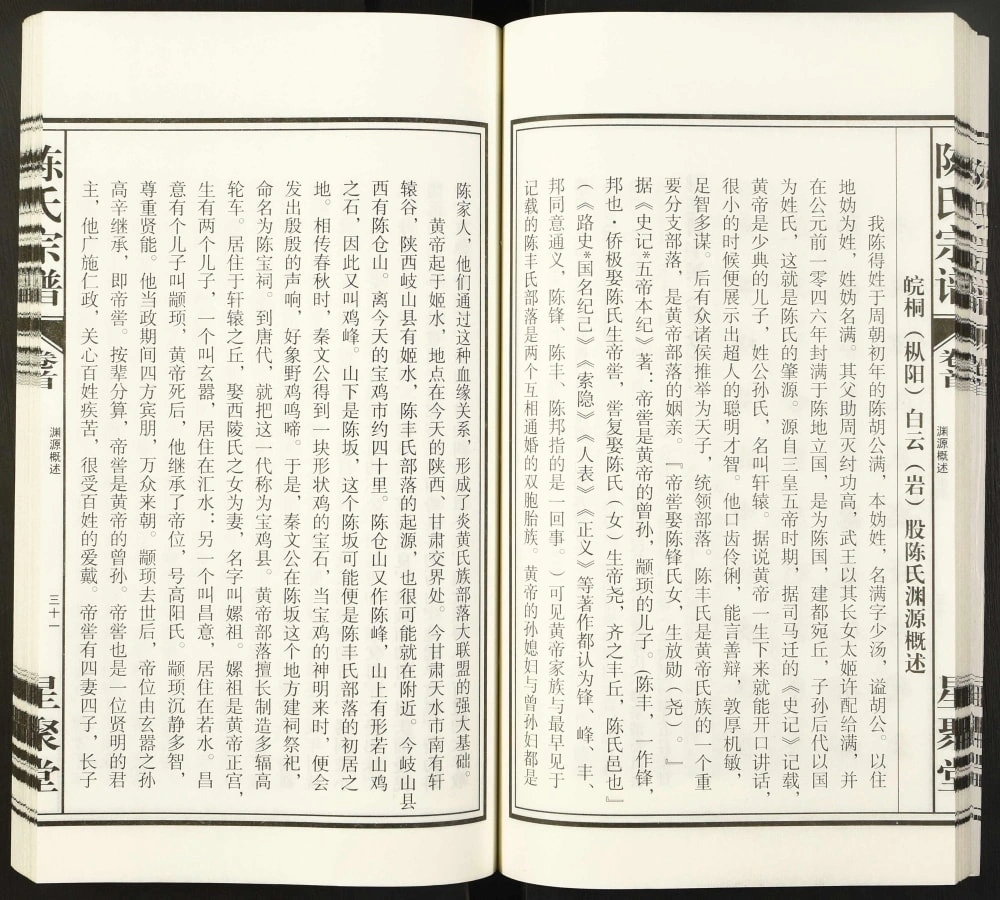 陈氏宗谱
卷首
渊源概述
星聚堂
皖桐（枞阳）白云（岩）股陈氏渊源概述
我陈得姓于周朝初年的陈胡公满，本妫姓，名满字少汤，谥胡公。以住
地妫为姓，姓妫名满。其父助周灭纣功高，武王以其长女太姬许配给满，并
在公元前一零四六年封满于陈地立国，是为陈国，建都宛丘，子孙后代以国
为姓氏，这就是陈氏的肇源。源自三皇五帝时期，据司马迁的《史记》记载，
黄帝是少典的儿子，姓公孙氏，名叫轩辕。据说黄帝一生下来就能开口讲话，
很小的时候便展示出超人的聪明才智。他口齿伶俐，能言善辩，敦厚机敏，
足智多谋。后有众诸侯推举为天子，统领部落。陈丰氏是黄帝氏族的一个重
要分支部落，是黄帝部落的姻亲。『帝喾娶陈锋氏女，生放勋（尧）。』
据《史记*五帝本纪》著：帝喾是黄帝的曾孙，颛顼的儿子。（陈丰，一作锋，
邦也·侨极娶陈氏生帝喾，喾复娶陈氏（女）生帝尧，齐之丰丘，陈氏邑也』
（《路史*国名纪己》《索隐》《人表》《正义》等著作都认为锋、峰、丰、
邦同意通义，陈锋、陈丰、陈邦指的是一回事。）可见黄帝家族与最早见于
记载的陈丰氏部落是两个互相通婚的双胞胎族。黄帝的孙媳妇与曾孙妇都是
陈家人，他们通过这种血缘关系，形成了炎黄氏族部落大联盟的强大基础。
黄帝起于姬水，地点在今天的陕西、甘肃交界处。今甘肃天水市南有轩
辕谷，陕西岐山县有姬水，陈丰氏部落的起源，也很可能就在附近。今岐山县
西有陈仓山。离今天的宝鸡市约四十里。陈仓山又作陈峰，山上有形若山鸡
之石，因此又叫鸡峰。山下是陈坂，这个陈坂可能便是陈丰氏部落的初居之
地。相传春秋时，秦文公得到一块形状鸡的宝石，当宝鸡的神明来时，便会
发出殷殷的声响，好象野鸡鸣啼。于是，秦文公在陈坂这个地方建祠祭祀，
命名为陈宝祠。到唐代，就把这一代称为宝鸡县。黄帝部落擅长制造多辐高
轮车。居住于轩辕之丘，娶西陵氏之女为妻，名字叫嫘祖。嫘祖是黄帝正宫，
生有两个儿子，一个叫玄嚣，居住在汇水；另一个叫昌意，居住在若水。昌
意有个儿子叫颛顼，黄帝死后，他继承了帝位，号高阳氏。颛顼沉静多智，
尊重贤能。他当政期间四方宾朋，万众来朝。颛顼去世后，帝位由玄嚣之孙
高辛继承，即帝喾。按辈分算，帝喾是黄帝的曾孙。帝喾也是一位贤明的君
主，他广施仁政，关心百姓疾苦，很受百姓的爱戴。帝喾有四妻四子，长子
陈氏宗谱
卷首
渊源概述
三十一
星聚堂